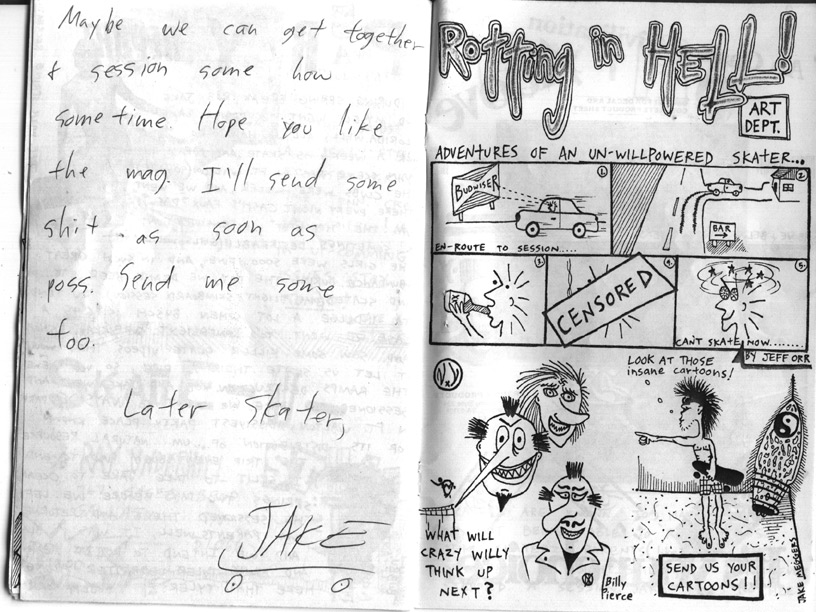 Maybe we can get together
& session some how
some time. Hope you like
the mag. I'll send some
shit as soon as
poss. Send me some
too.
Later Skater,
JAKE
Rotting in HELL!
ART
DEPT.
ADVENTURES OF AN UN-WILLPOWERED SKATER...
1.
BUDWISER
EN-ROUTE TO SESSION.....
2.
BAR
3.
4.
CENSORED
5.
CAN'T SKATE NOW........
BY JEFF ORR
LOOK AT THOSE
insane cartoons!
WHAT WILL
CRAZY WILLY
THINK UP
NEXT?
Billy
Pierce
SEND US YOUR
CARTOONS!!!
JAKE MEGGERS